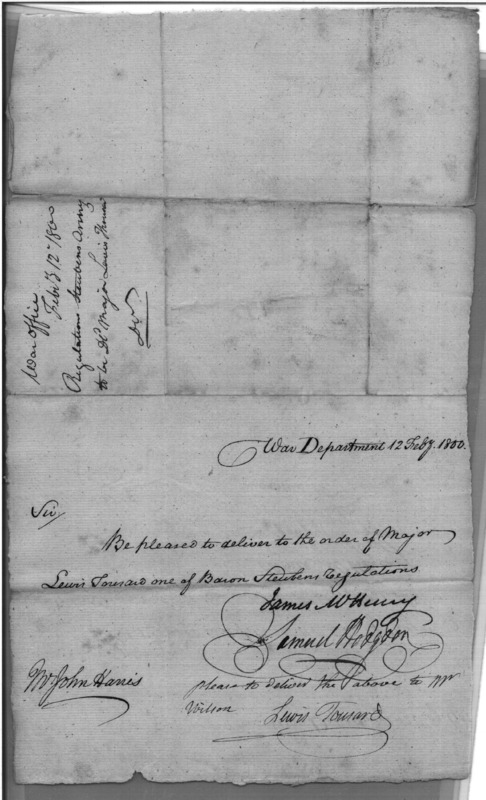 War Office
Feb'y 12th 1800
Regulations Steubens Army
to be Dd Major Lewis
War Department 12 Feby. 1800.
Sir,
Be pleased to deliver to the order of Major
Lewis Tousard one of Baron Steubens regulations
James McHenry
Samuel Hodgdon
Mr John Harris
please to deliver the above to Mr
Wilson
Lewis Tousard